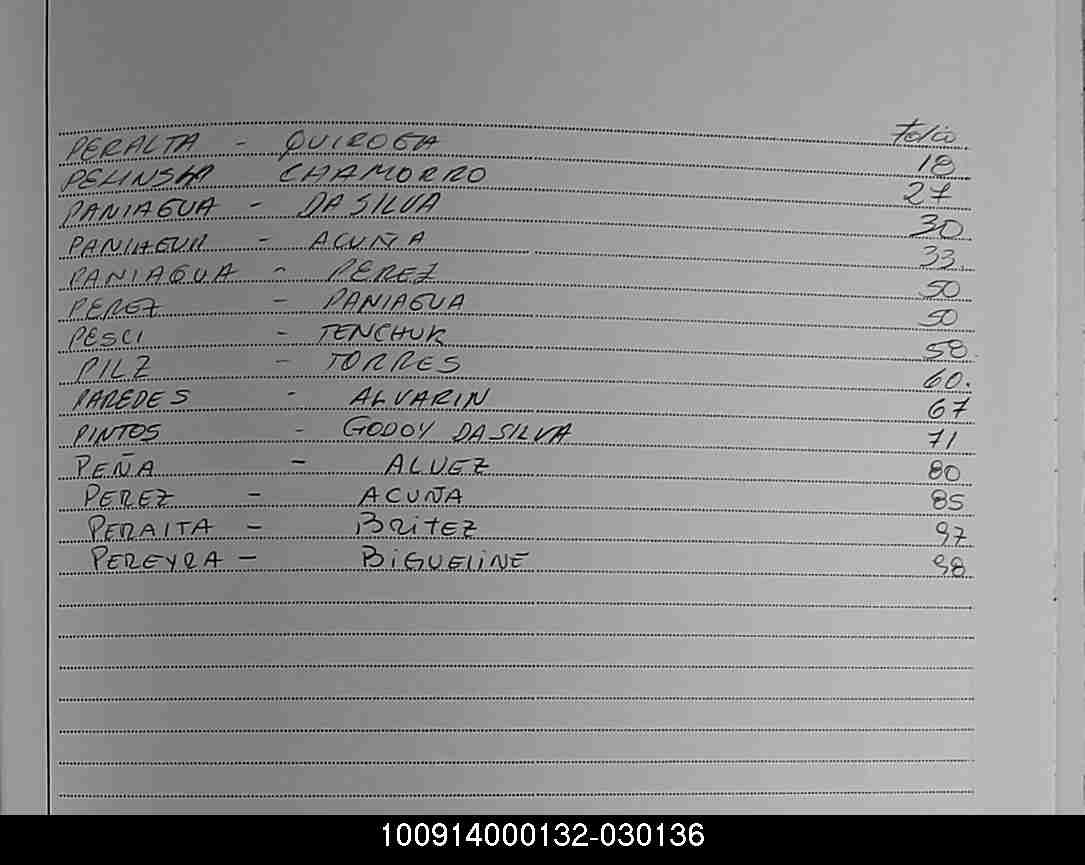 Folio
PERALTA - QUIROGA 18
PELINSKA CHAMORRO 27
PANIAGUA - DA SILVA 30
PANIAGUA - ACUÑA 33.
PANIAGUA - PEREZ 50
PEREZ - PANIAGUA 50
PESCI - TENCHUK 58.
PILZ - TORRES 60.
PAREDES - ALVARIN 67
PINTOS - GODOY DA SILVA 71
PEÑA - ALVEZ 80
PEREZ - ACUÑA 85
PERALTA - BRITEZ 97
PEREYRA - BIGUELINE 98
100914000132-030136